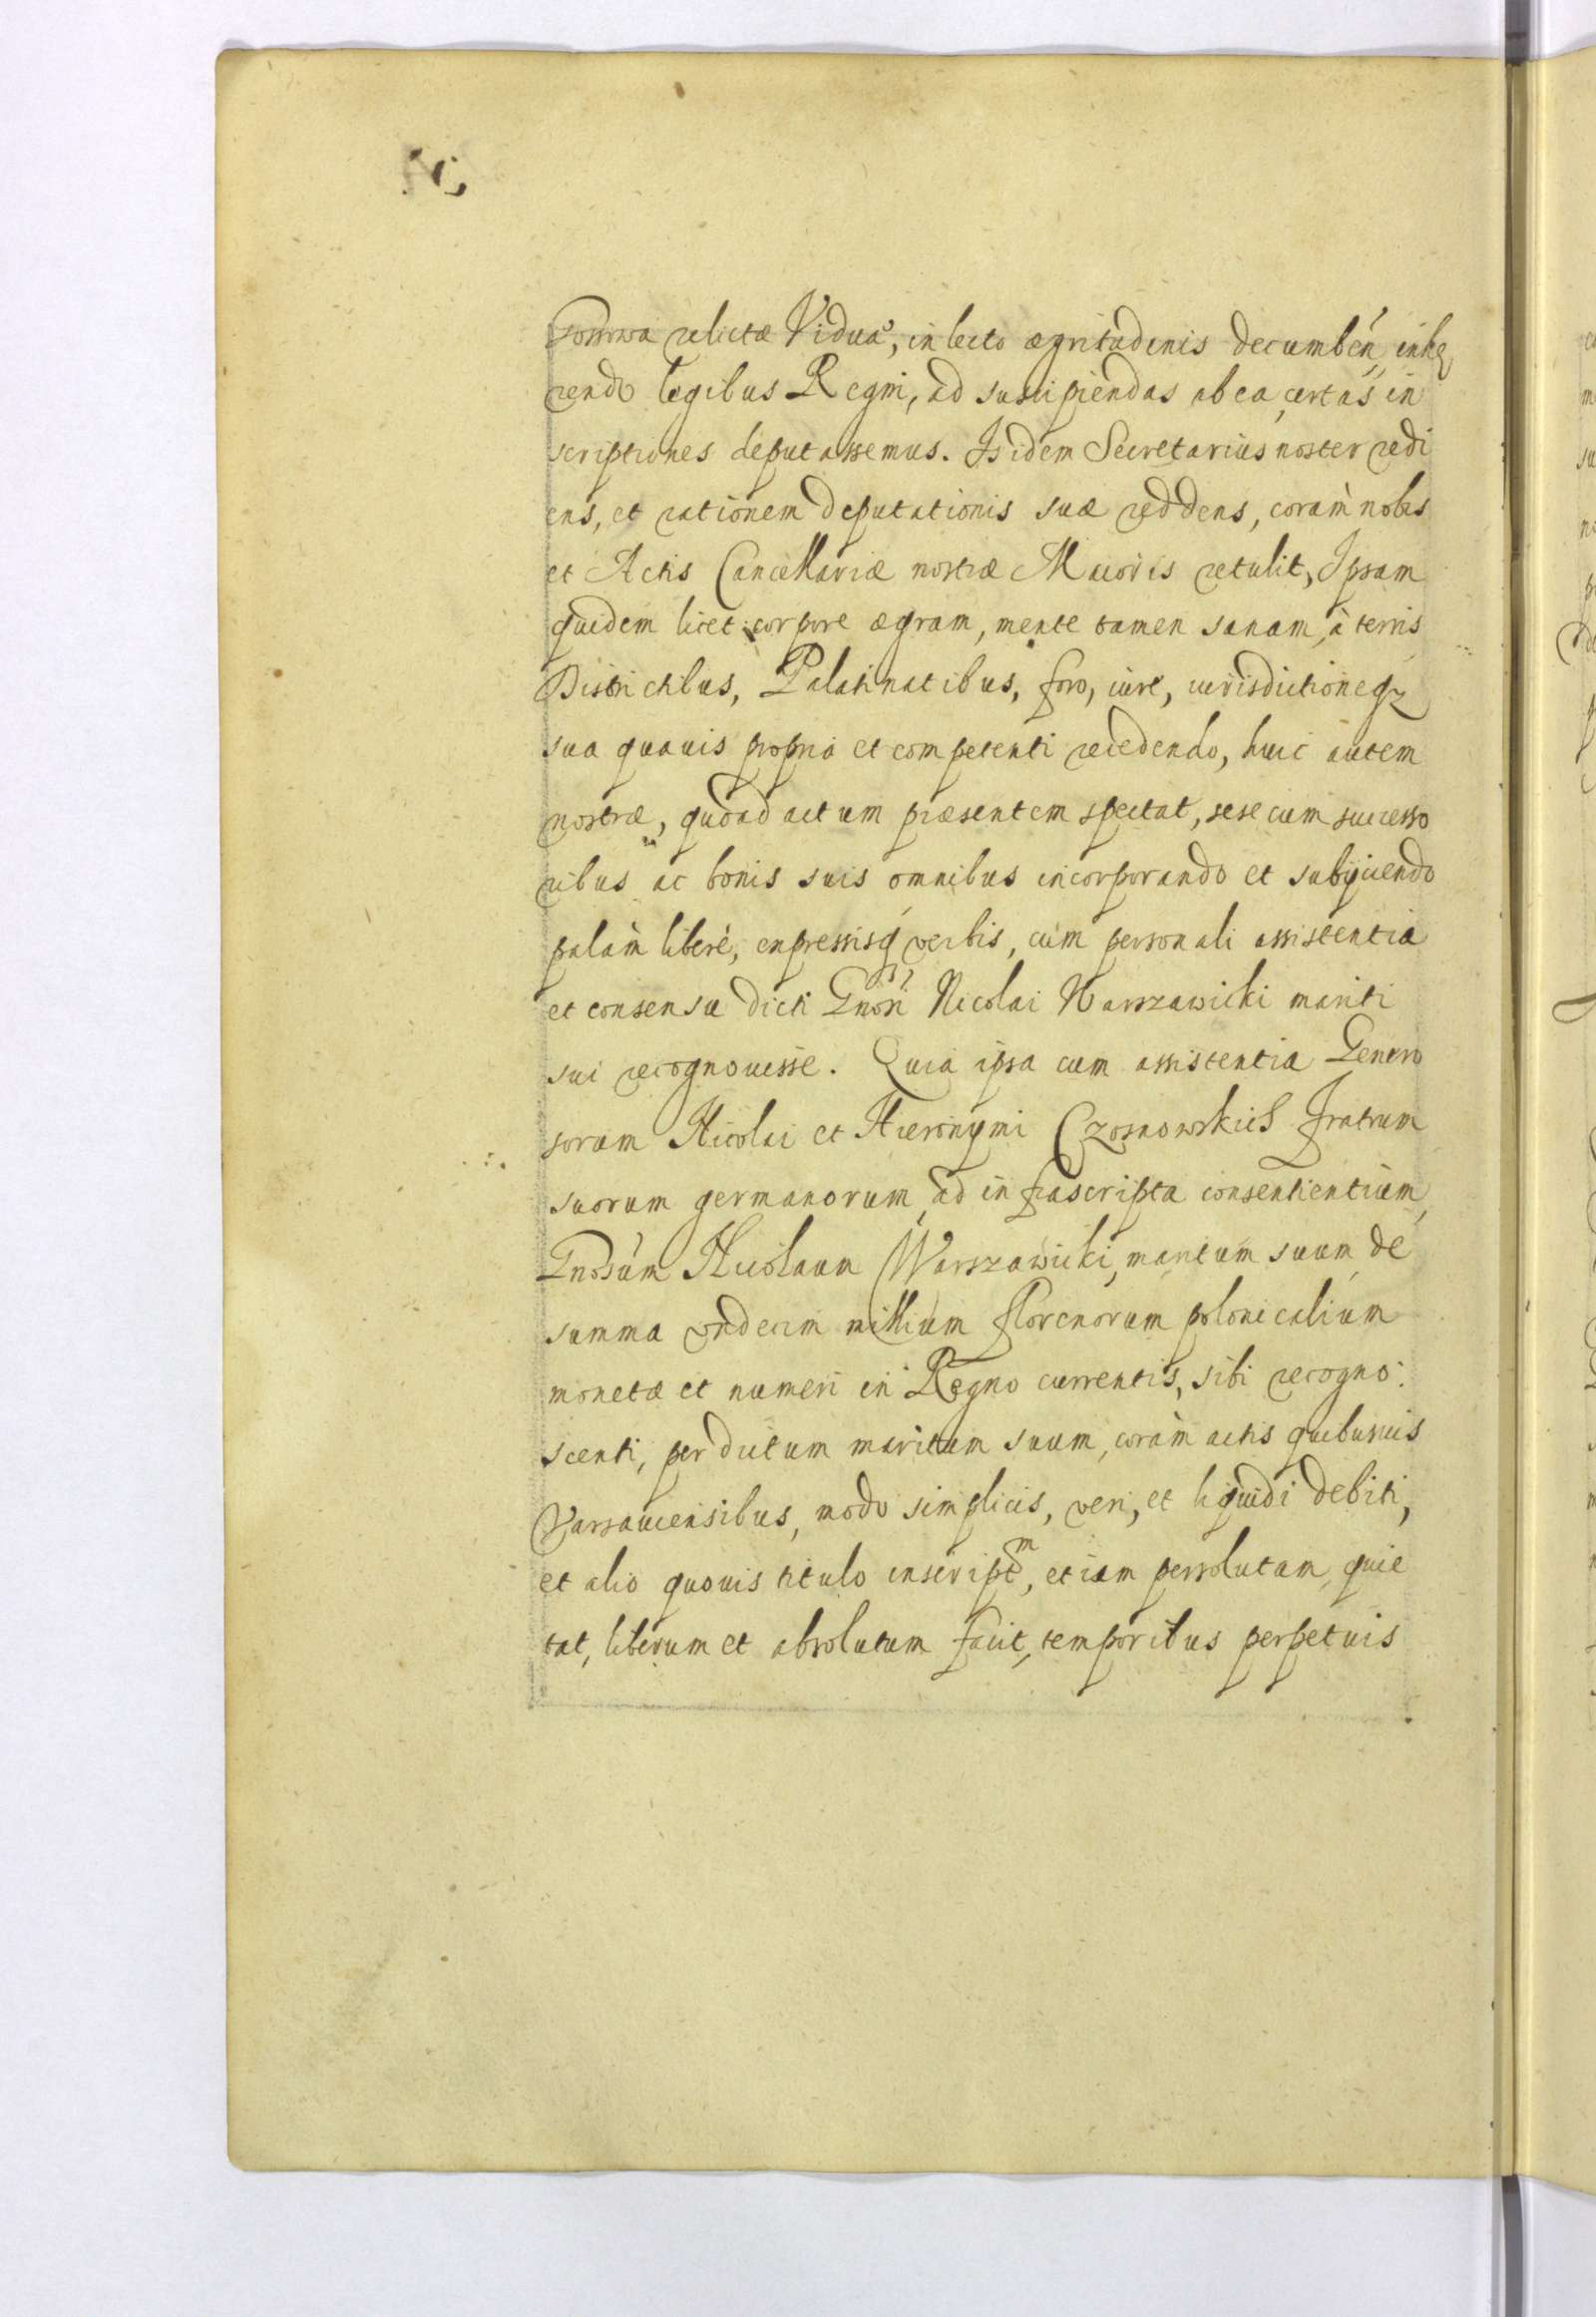 relictæ Viduæ, in lecto ægritudinis decumbeń, inhę
rendo legibus Regni, ad suscipiendas ab ea, certas in
scriptiones deputassemus. Is idem Secretarius noster redi
ens, et rationem deputationis suæ reddens, coràm nobis
et Actis Cancellariæ nostræ Maioris retulit, Ipsam
quidem licet corpore ægram, mente tamen sanam, à terris
Districtibus, Palatinatibus, foro, iure, iurisdictioneq₃
sua quauis propria et competenti recedendo, huic autem
nostræ, quoad actum præsentem spectat, sese cum successo
ribus ac bonis suis omnibus incorporando et subijciendo
palàm liberè, expressisq́ verbis, cum personali assistentia
et consensu dicti Gnosi Nicolai Warszawicki mariti
sui recognouisse. Quia ipsa cum assistentia Genero
sorum Nicolai et Hieronymi Czosnowskich Fratrum
suorum germanorum, ad infrascripta consentientium,
Gnosúm Nicolaum Warszawicki, maritum suum de
summa vndecim millium florenorum polonicalium
monetæ et numeri in Regno currentis, sibi recogno:
scenti, per dictum maritum suum, coràm actis quibusuis
Varsauiensibus, modo simplicis, veri, et liquidi debiti,
et alio quouis titulo inscriptm, et iam persolutam, quie
tat, liberum et absolutum facit, temporibus perpetuis